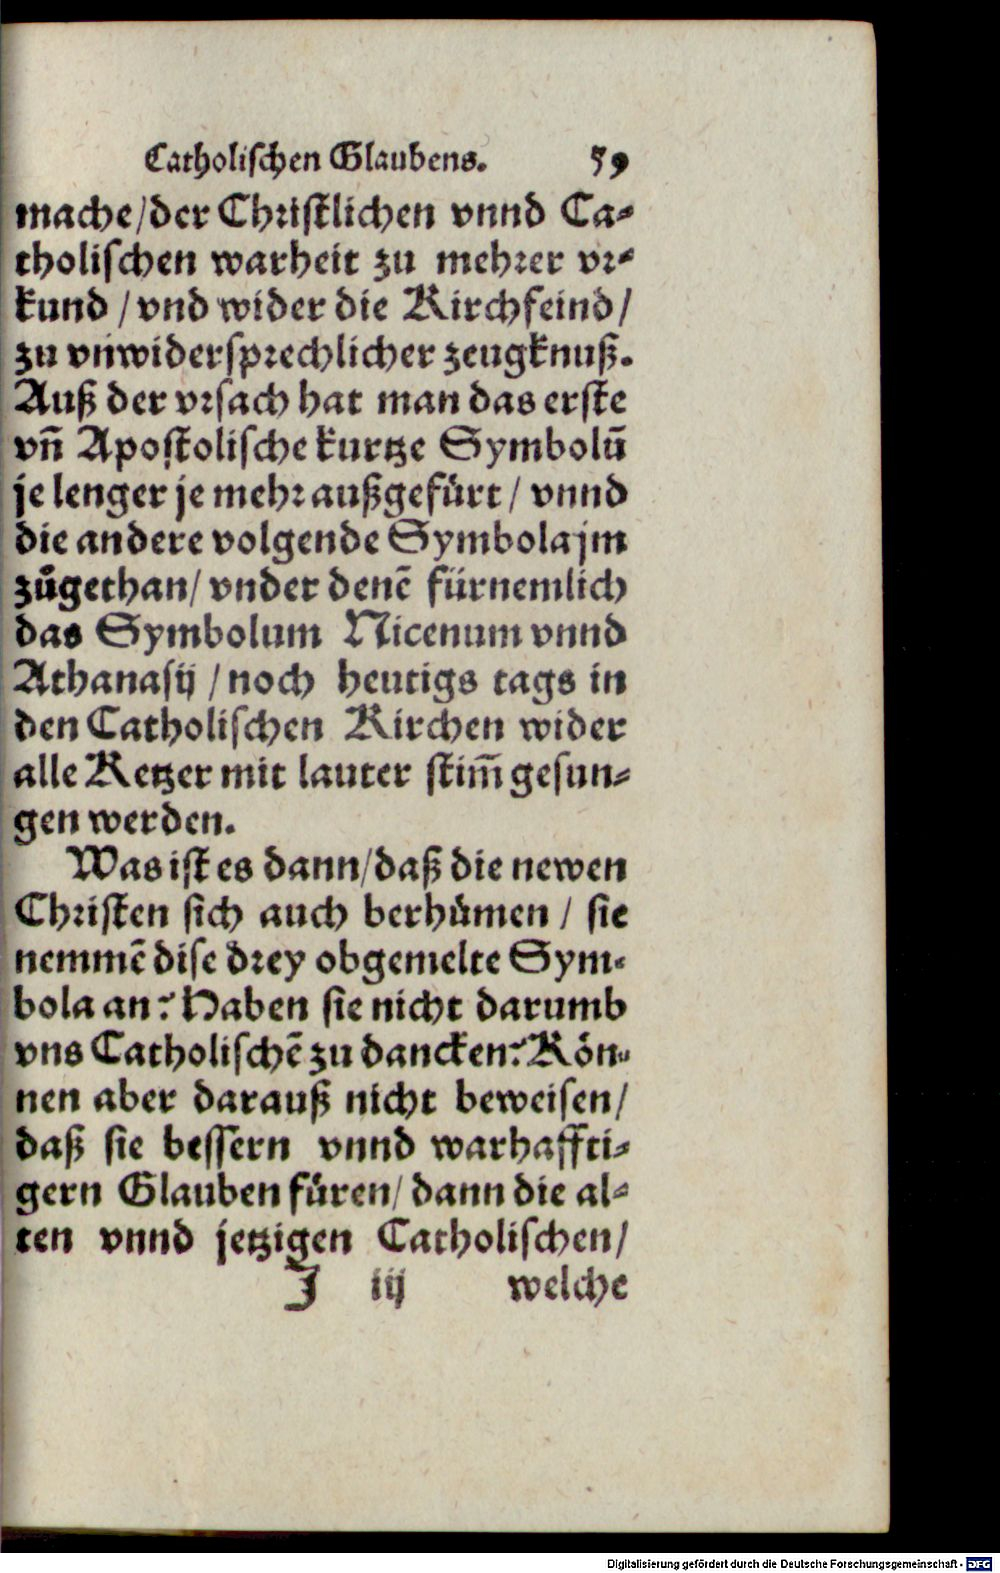 Catholischen Glaubens. 59
mache/der Christlichen vnnd Ca-
tholischen warheit zu mehrer vr-
kund / vnd wider die Kirchfeind /
zu vnwidersprechlicher zeugknuß.
Auß der vrsach hat man das erste
vñ Apostolische kurtze Symbolũ
je lenger je mehr außgefürt / vnnd
die andere volgende Symbola jm
zůgethan / vnder denẽ fürnemlich
das Symbolum Nicenum vnnd
Athanasij / noch heutigs tags in
den Catholischen Kirchen wider
alle Ketzer mit lauter stim̃ gesun-
gen werden.
Was ist es dann/daß die newen
Christen sich auch berhümen / sie
nemmẽ dise drey obgemelte Sym-
bola an? Haben sie nicht darumb
vns Catholischẽ zu dancken? Kön-
nen aber darauß nicht beweisen /
daß sie bessern vnnd warhaffti-
gern Glauben füren / dann die al-
ten vnnd jetzigen Catholischen /
J iij welche
Digitalisierung gefördert durch die Deutsche Forschungsgemeinschaft - DFG